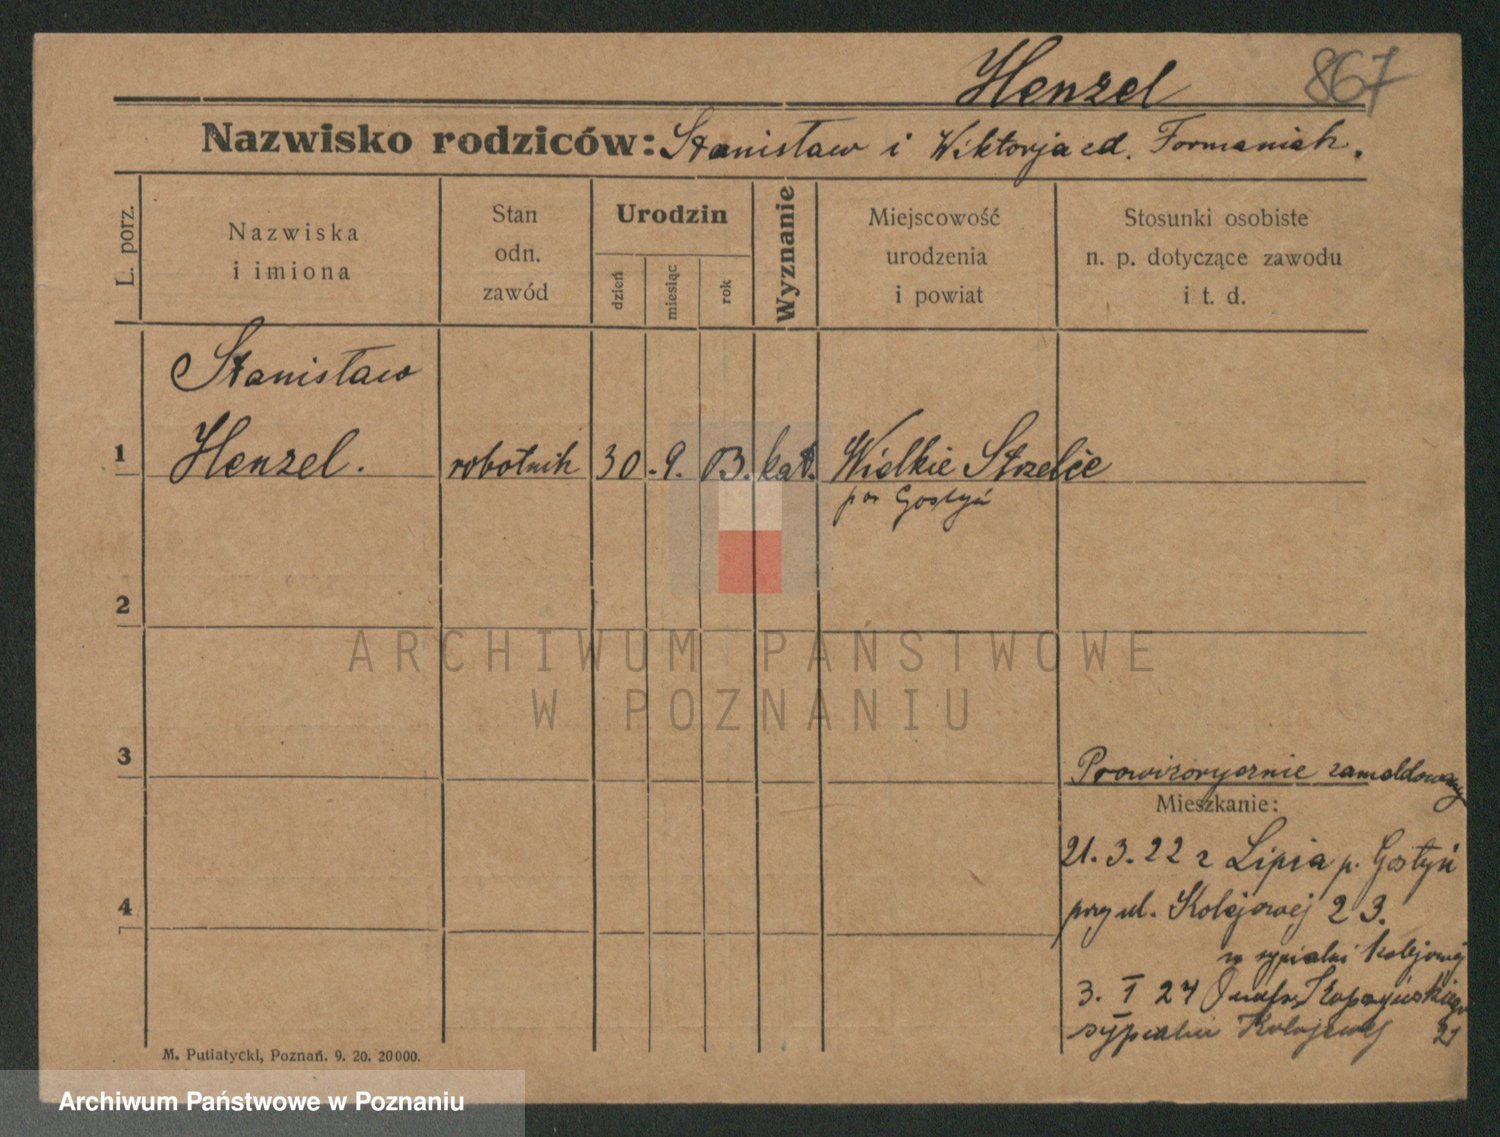 Henzel 867
Nazwisko rodziców: Stanisław i Wiktorja cd. Formaniak.
L. porz.
Nazwiska
i imiona
Stan
odn.
zawód
Urodzin
dzień
miesiąc
rok
Wyznanie
Miejscowość
urodzenia
i powiat
Stosunki osobiste
n. p. dotyczące zawodu
i t. d.
Stanisław
1 Henzel. robotnik 30. 9. 03. kat. Wielkie Strzelce
pow Gostyń
2
ARCHIWUM PAŃSTWOWE
W POZNANIU
3
Prowizorycznie zameldowany
Mieszkanie:
21. 3. 22 z Lipia p. Gostyń
przy ul. Kolejowej 23.
4
w sypialni kolejowej
3. I 24
sypialni Kolejowej 21
M. Putiatycki, Poznań. 9. 20. 20000.
Archiwum Państwowe w Poznaniu